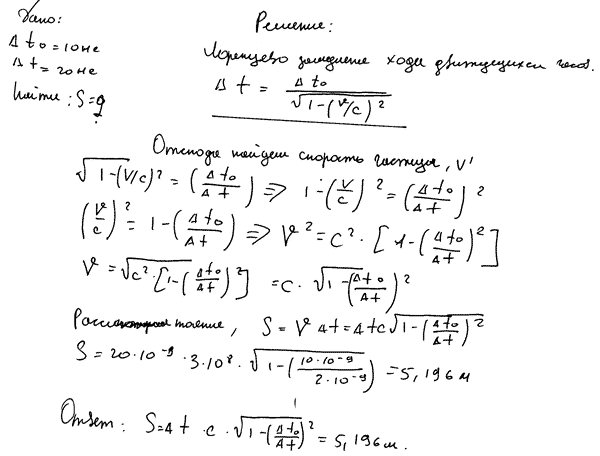 Дано:
Δt₀ = 10 нс
Δt = 20 нс
Найти: S = ?
Решение:
Лоренцево замедление хода движущихся часов.
Δt = Δt₀ / √(1-(v/c)²)
Отсюда найдем скорость частицы, v'
√(1-(V/c)²) = (Δt₀/Δt) => 1-(V/c)² = (Δt₀/Δt)²
(v/c)² = 1-(Δt₀/Δt) => V² = c² · [1-(Δt₀/Δt)²]
V = √(c²·[1-(Δt₀/Δt)²]) = c · √(1-(Δt₀/Δt)²)
S = V Δt = Δt c √(1-(Δt₀/Δt)²)
S = 20·10⁻⁹ · 3·10⁸ · √(1-(10·10⁻⁹/2·10⁻⁹)) = 5,196 м
Ответ: S = Δt · c · √(1-(Δt₀/Δt)²) = 5,196 м.